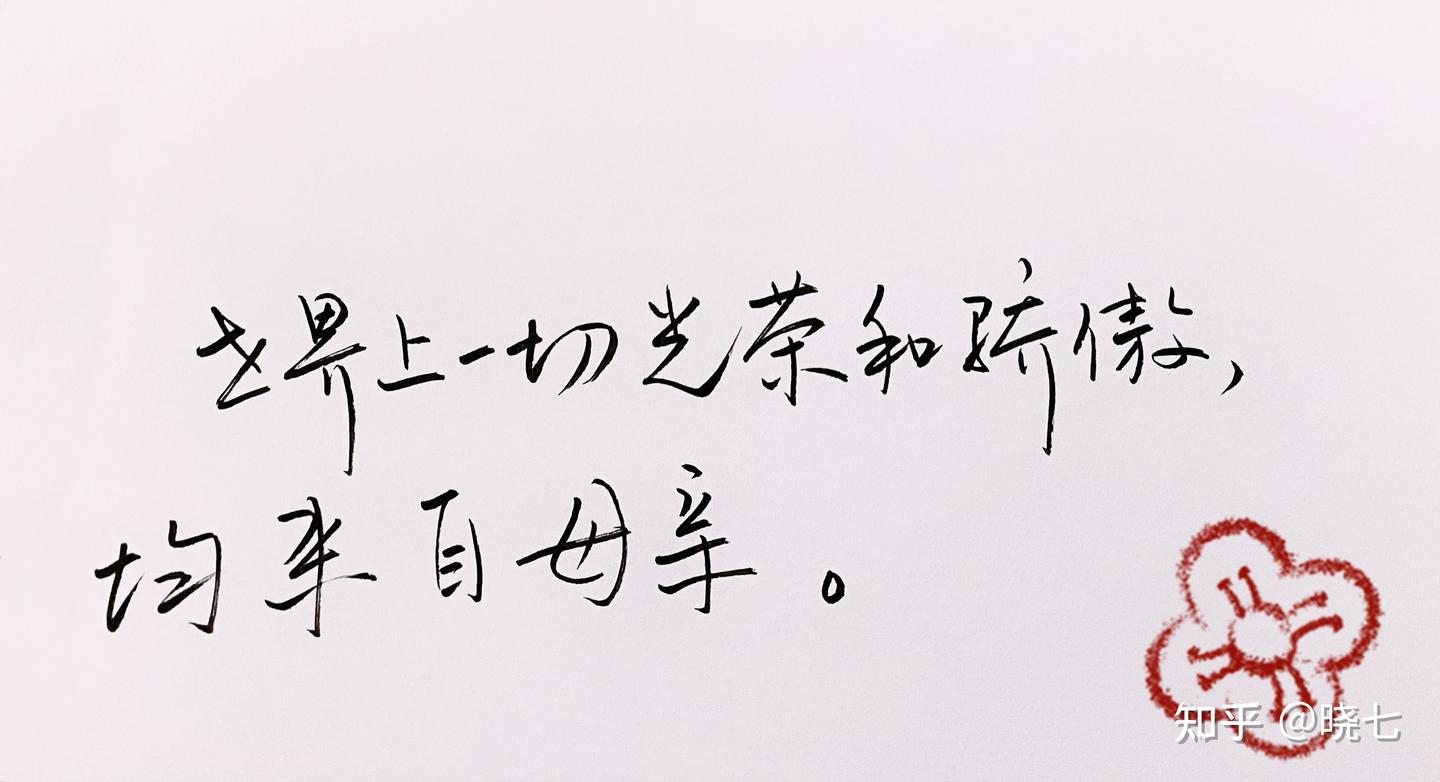 世界上一切光荣和骄傲，
均来自母亲。
知乎 @晓七